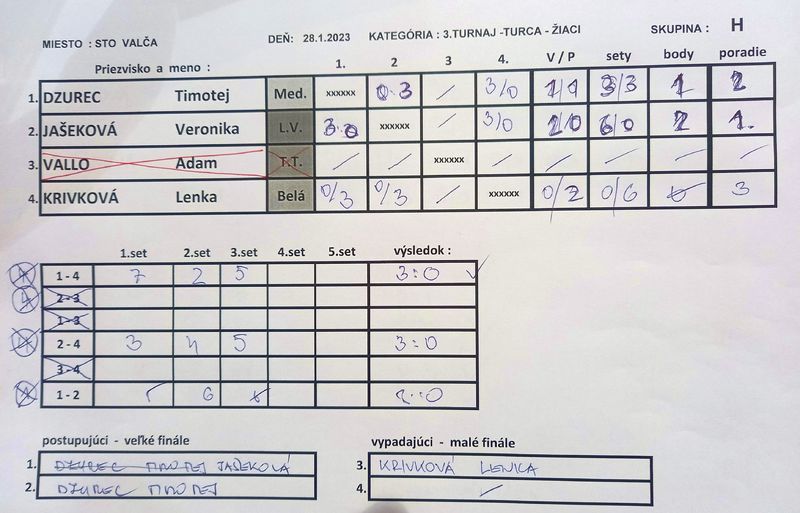 MIESTO : STO VALČA DEŇ: 28.1.2023 KATEGÓRIA : 3.TURNAJ -TURCA - ŽIACI SKUPINA : H
Priezvisko a meno : 1. 2 3 4. V / P sety body poradie
1. DZUREC Timotej Med. xxxxxx 0:3 / 3/0 1/1 3/3 1 2
2. JAŠEKOVÁ Veronika L.V. 3:0 xxxxxx / 3/0 2/0 6/0 2 1.
3. VALLO Adam T.T. / / xxxxxx / / / / /
4. KRIVKOVÁ Lenka Belá 0/3 0/3 / xxxxxx 0/2 0/6 3
1.set 2.set 3.set 4.set 5.set výsledok :
1 - 4 7 2 5 3:0
2 - 3
1 - 3
2 - 4 3 4 5 3:0
3 - 4
1 - 2 6
postupujúci - veľké finále vypadajúci - malé finále
1. DZUREC TIMOTEJ JAŠEKOVÁ 3. KRIVKOVÁ LENKA
2. DZUREC TIMOTEJ 4. /